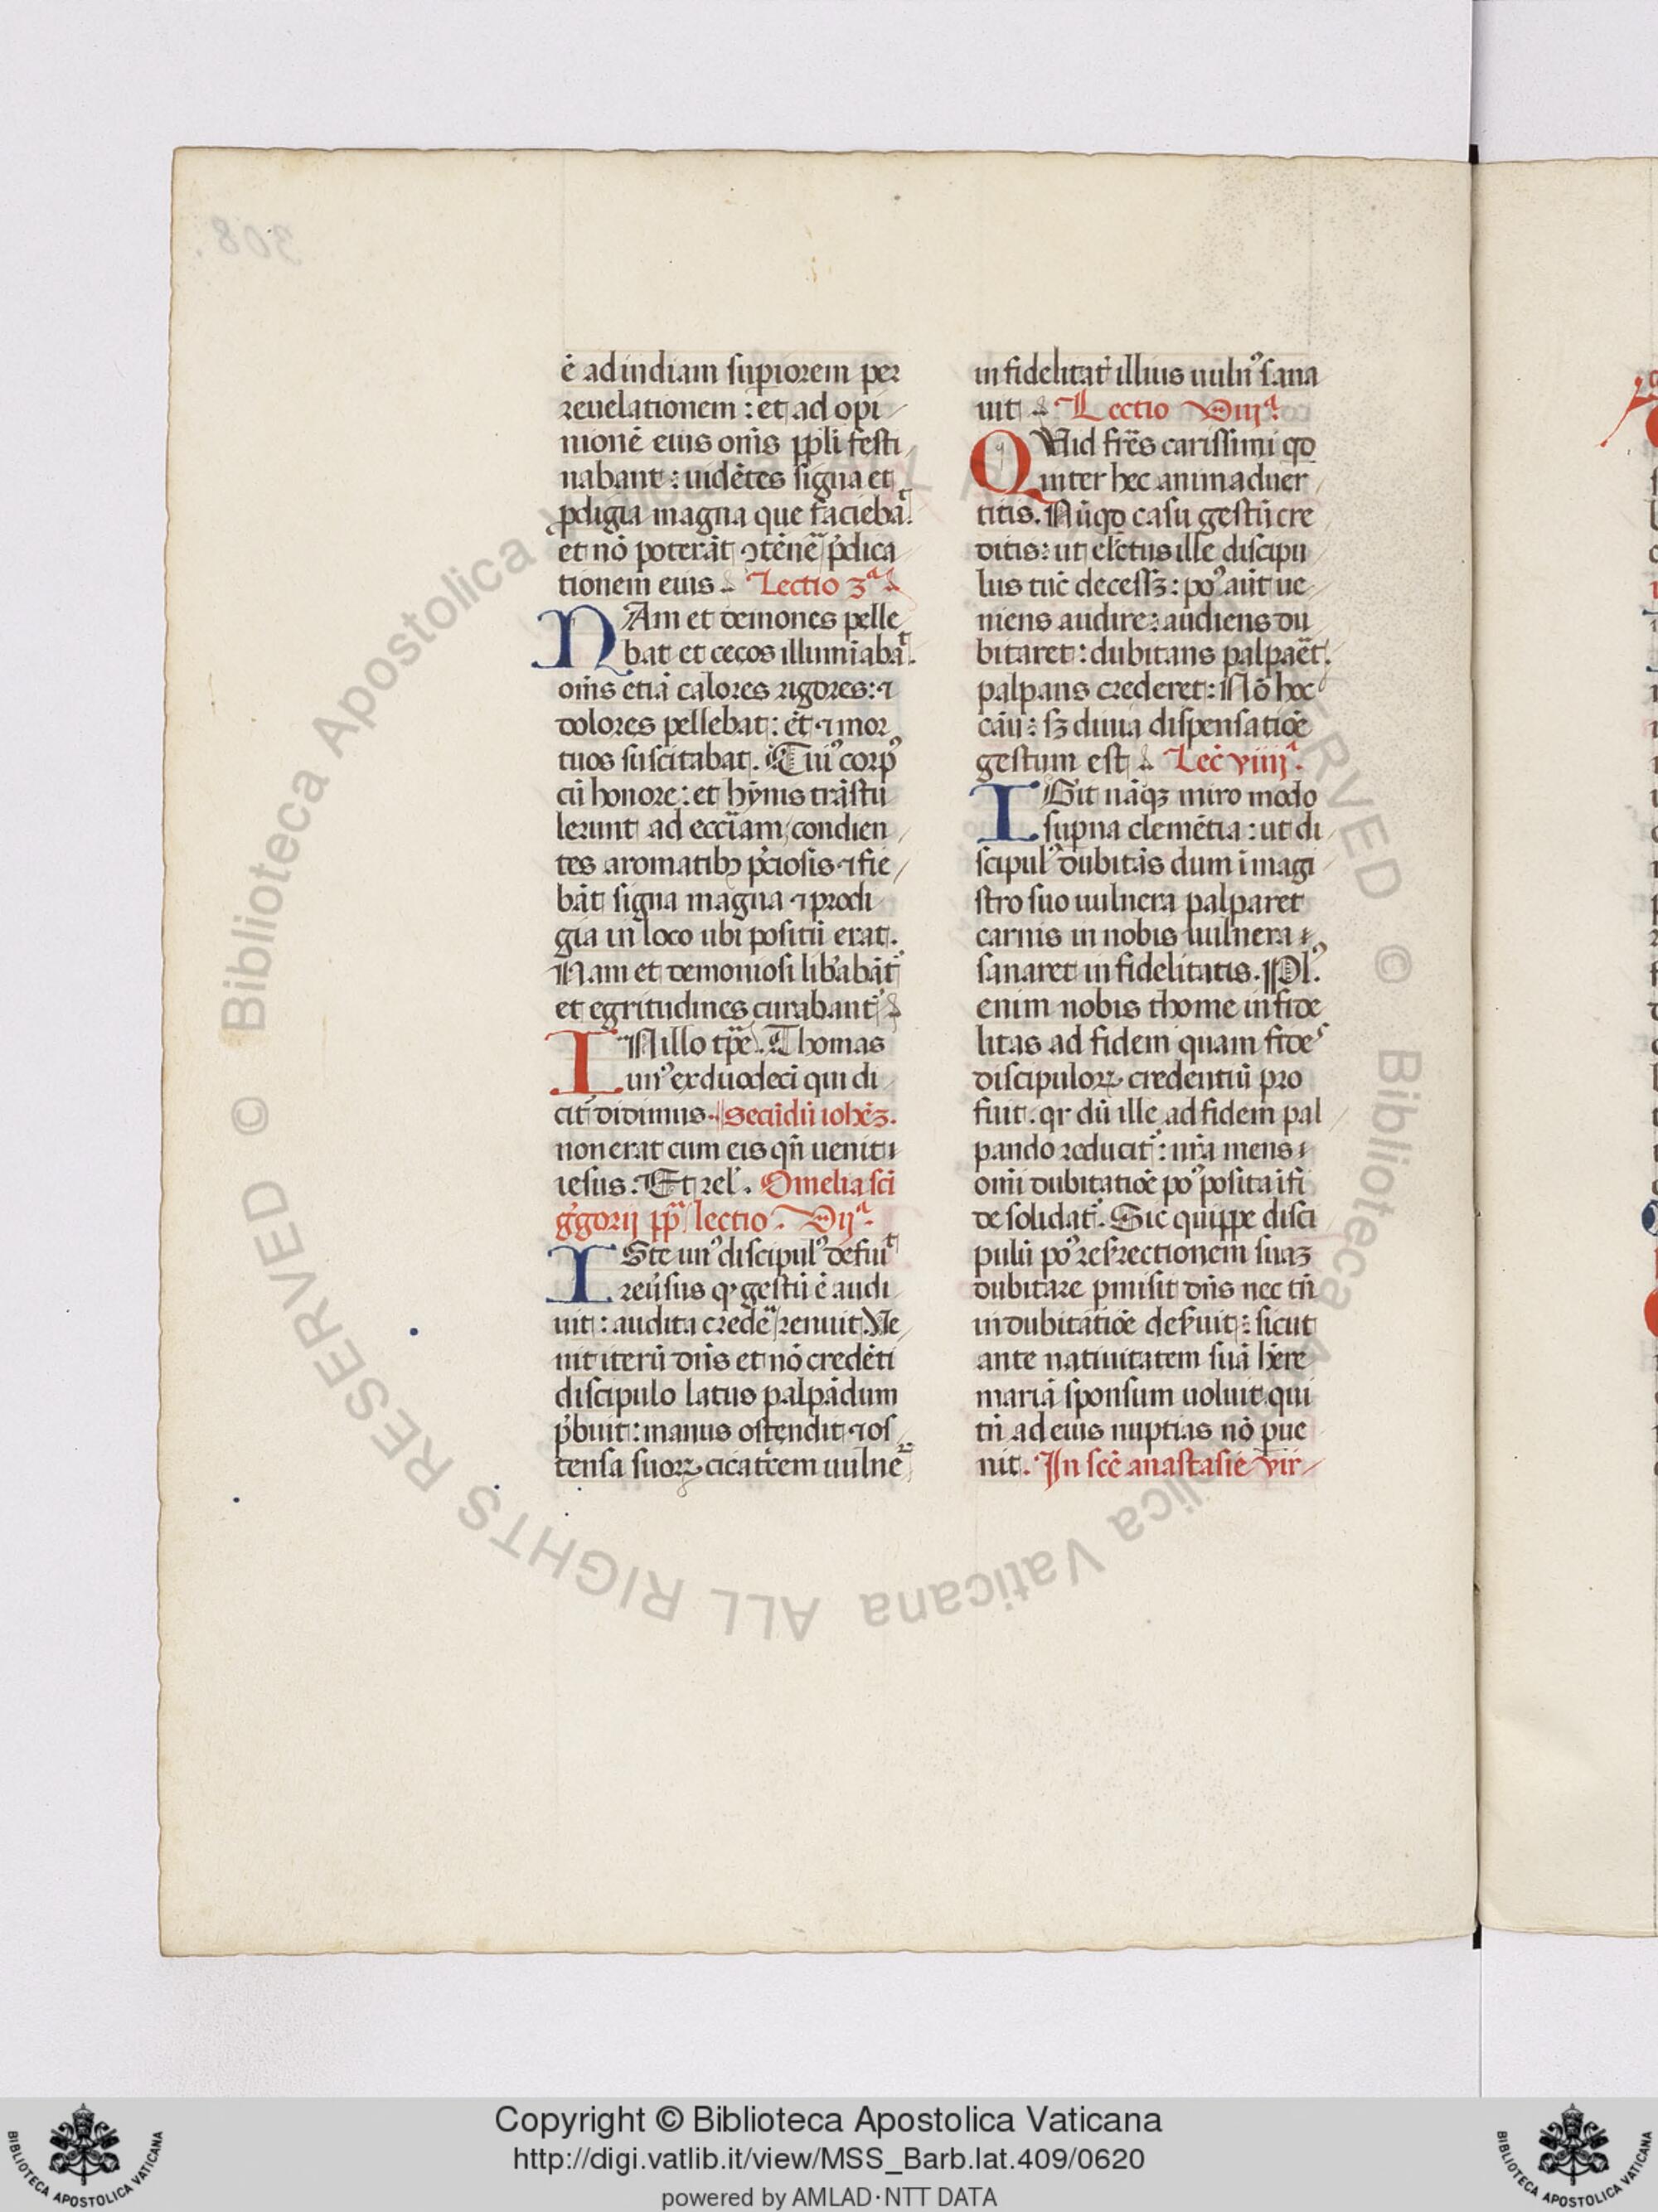 308.
ē ad indiam supiorem per
reuelationem : et ad opi
nionē eius om̄s ppli festi
nabant : uidētes signa et
pdigia magna que facieba᷑.
et nō poterāt ꝯtēne᷑ pdica
tionem eius. Lectio 3ª
NAm et demones pelle
bat et cecos illumīaba᷑.
om̄s etiā calores rigores : ⁊
dolores pellebat : et ⁊ mor
tuos suscitabat. Cui᷒ corp᷒
cū honore : et hȳnis trāstu
lerunt ad ecc̄iam condien
tes aromatibꝫ p̄ciosis ⁊ fie
bāt signa magna ⁊ prodi
gia in loco ubi positū erat.
Nam et demoniosi lib̄abāt᷑
et egritudines curabant᷑
IN illo tp̄e. Thomas
un᷒ ex duodecī qui di
cit᷑ didimus. Secūdū ioh̄ez.
non erat cum eis qn̄ uenit
iesus. Et rel᷒. Omelia sc̄i
g̊gorij pp̄ lectio. Vijª.
ISte un᷒ discipul᷒ defui᷑
reūsus qꝛ gestū ē audi
uit : audita crede᷑ renuit. Ve
nit iterū dn̄s et nō credēti
discipulo latus palpādum
p̄buit : manus ostendit ⁊ os
tensa suoꝝ cicat̄cem uulne᷑
in fidelitat᷑ illius uuln᷒ sana
uit. Lectio Viijª.
QUid fr̄es carissimi qd
inter hec animaduer
titis. Nūqd casu gestū cre
ditis : ut el̄ctus ille discipu
lus tūc decessꝫ : po᷒ aūt ue
niens audire : audiens du
bitaret : dubitans palpae᷑t.
palpans crederet : Nō hoc
cāu : sꝫ diuīa dispensatiōe
gestum est. Lec̄ viiijª.
IGit nāqꝫ miro modo
supna clemētia : ut di
scipul᷒ dubitās dum ī magi
stro suo uulnera palparet
carnis in nobis uulnera
sanaret in fidelitatis. Pl᷒.
enim nobis thome in fide
litas ad fidem quam fides
discipuloꝝ credentiū pro
fuit. qr dū ille ad fidem pal
pando reducit᷑ : nr̄a mens
om̄i dubitatiōe po᷒ posita ī fi
de solidat᷑. Sic quippe disci
pulū po᷒ resrectionem suaꝫ
dubitare pmisit dn̄s nec tn̄
in dubitatiōe deseruit : sicut
ante natiuitatem suā h̄ere
mariā sponsum uoluit qui
tn̄ ad eius nuptias nō pue
nit. In sc̄e anastasie vir
© Biblioteca Apostolica Vaticana ALL RIGHTS RESERVED © Biblioteca Apostolica Vaticana ALL RIGHTS RESERVED
Copyright © Biblioteca Apostolica Vaticana
http://digi.vatlib.it/view/MSS_Barb.lat.409/0620
powered by AMLAD·NTT DATA
BIBLIOTECA APOSTOLICA VATICANA
BIBLIOTECA APOSTOLICA VATICANA